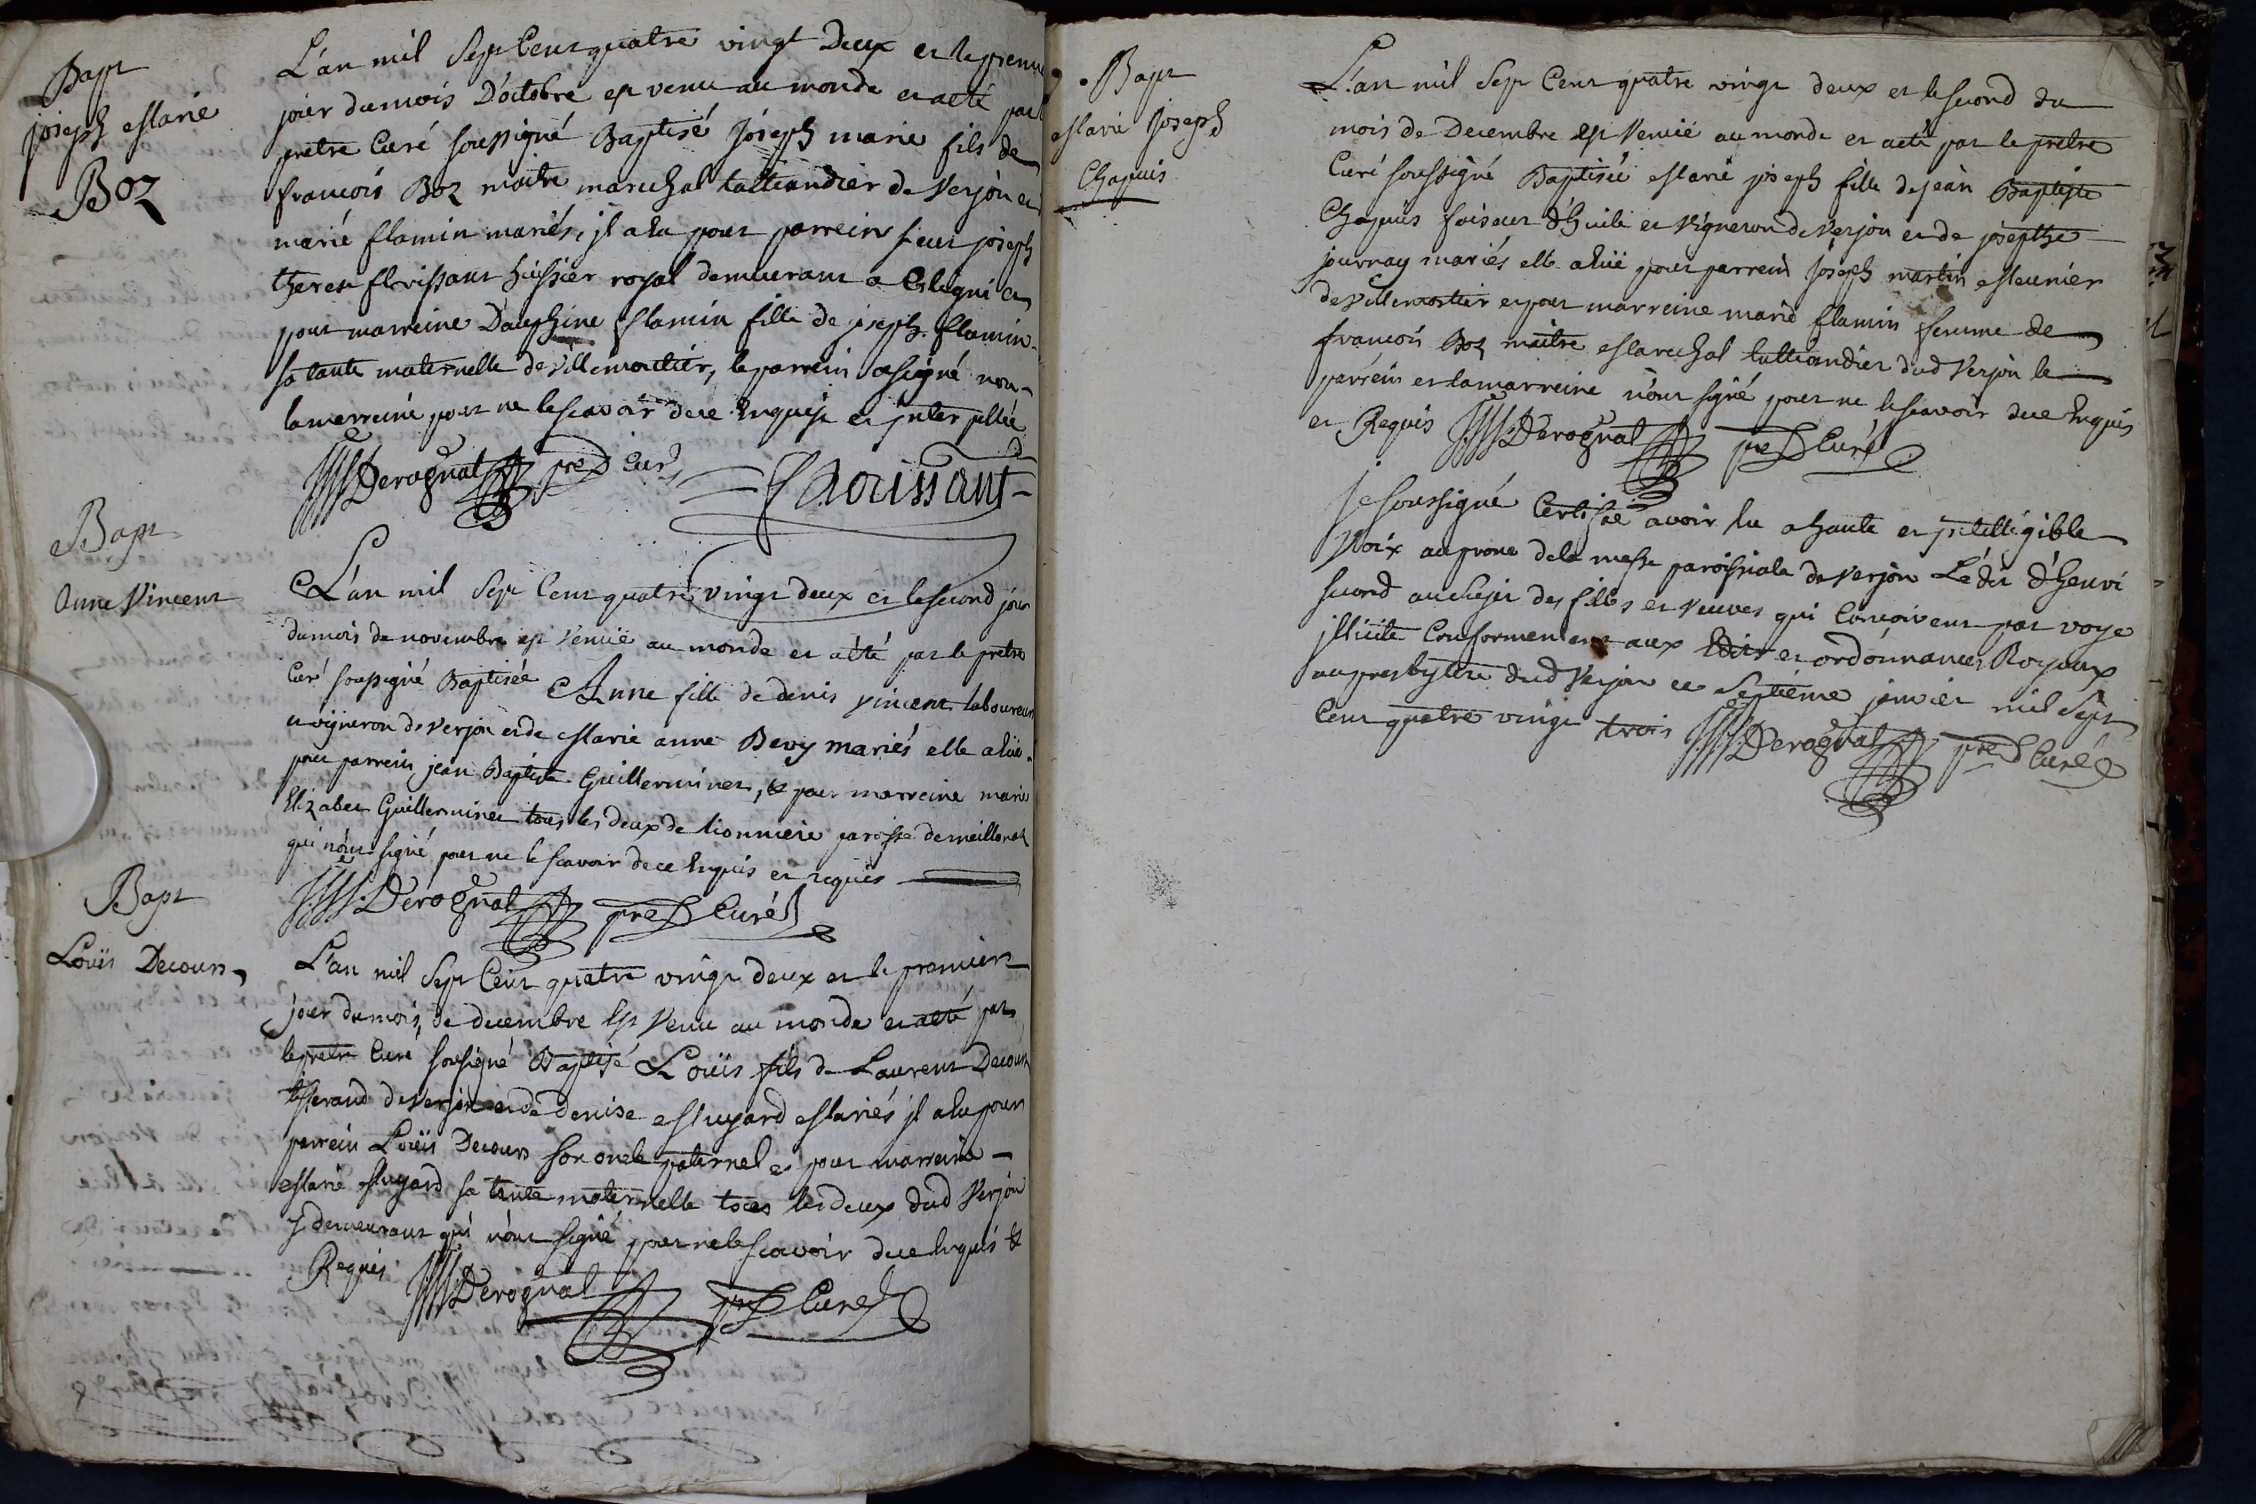 Bapt
joseph Marie
Boz
L'an mil Sept Cent quatre vingt Deux et le premier
jour du mois D'octobre est venu au monde et a eté par
pretre Curé soussigné Baptisé joseph marie fils de
francois Boz maitre marechal taillandier de Verjon et
marie flamin mariés, jl a hu pour parrein sieur joseph
huissier royal demeurant a Coligni et
pour marreine Dauphine flamin fille de joseph flamin
sa tante maternelle de villemoutier, le parrein a signé non
la marreine pour ne le scavoir de ce Enquise et jnterpellée
Derognat pre Curé
Bapt
Anne Vincent
L'an mil Sept Cent quatre vingt deux et le second jour
du mois de novembre est Venüe au monde et a été par le pretre
Curé soussigné Baptisée Anne fille de denis vincent laboureur
et vigneron de Verjon et de Marie anne Bevy mariés elle a hüe
pour parrein jean Baptiste Guillerminet, & pour marreine marie
Elizabet Guillerminet tous les deux de lionniere paroisse de meillonat
qui n'ont signé pour ne le scavoir de ce Enquis et requis
Derognat pre Curé
Bapt
Loüis Decours
L'an mil Sept Cent quatre vingt deux et le premier
jour du mois de decembre Est Venu au monde et a eté par
le pretre Curé sousigné Baptisé Loüis fils de Laurent Decours
tisserand de Verjon et de denise Muyard Mariés jl a hu pour
parrein Loüis Decours son oncle paternel et pour marreine
Marie Muyard sa tante maternelle tous les deux dud Verjon
y demeurant qui n'ont signé pour ne le scavoir de ce Enquis &
Requis
Derognat pre Curé
Bapt
Marie Joseph
Chapuis
L'an mil Sept Cent quatre vingt deux et le second du
mois de Decembre Est Venüe au monde et a eté par le pretre
Curé soussigné Baptisée Marie joseph fille de jean Baptiste
Chapuis faiseur d'huile et Vigneron de Verjon et de josepthe
journay mariés elle a hüe pour parrein joseph martin Meunier
de Villemoutier et pour marreine marie flamin femme de
francois Boz maitre Marechal taillandier dud Verjon le
parrein et la marreine n'ont signé pour ne le scavoir de ce Enquis
et Requis Derognat pre Curé
je soussigné Certifie avoir lu a haute et jntelligible
Voix au prone de la messe paroissiale de Verjon L'édit d'henri
second au sujet des filles et veuves qui Concoivent par voye
jllicite Conformement aux Edits et ordonnances Royaux
au presbytere dud Verjon ce Septième janvier mil Sept
Cent quatre vingt trois Derognat pre Curé